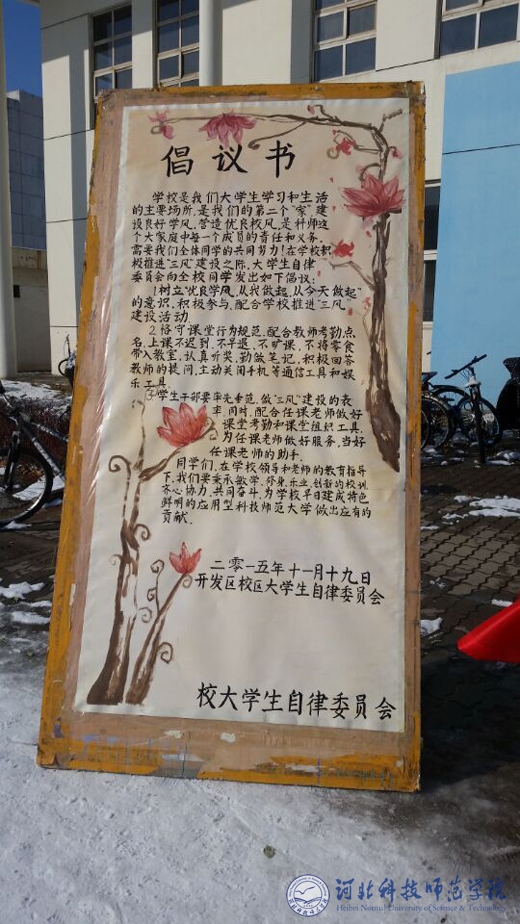 倡议书
学校是我们大学生学习和生活
的主要场所,是我们的第二个“家”,建
设良好学风,营造优良校风,是科师这
个大家庭中每一个成员的责任和义务,
需要我们全体同学的共同努力!在学校积
极推进“三风”建设之际,大学生自律
委员会向全校同学发出如下倡议:
1.树立“优良学风,从我做起,从今天做起”
的意识,积极参与、配合学校推进“三风”
建设活动。
2.恪守课堂行为规范,配合教师考勤点
名,上课不迟到、不早退、不旷课、不将零食
带入教室,认真听奖,勤做笔记,积极回答
教师的提问,主动关闭手机等通信工具和娱
乐工具。
3.学生干部要率先垂范,做“三风”建设的表
率,同时,配合任课老师做好
课堂考勤和课堂组织工具,
为任课老师做好服务,当好
任课老师的助手。
同学们,在学校领导和老师的教育指导
下,我们要秉承敬学、修身、乐业、创新的校训,
齐心协力,共同奋斗,为学校早日建成特色
鲜明的应用型科技师范大学做出应有的
贡献。
二零一五年十一月十九日
开发区校区大学生自律委员会
校大学生自律委员会
河北科技师范学院
Hebei Normal University of Science & Technology